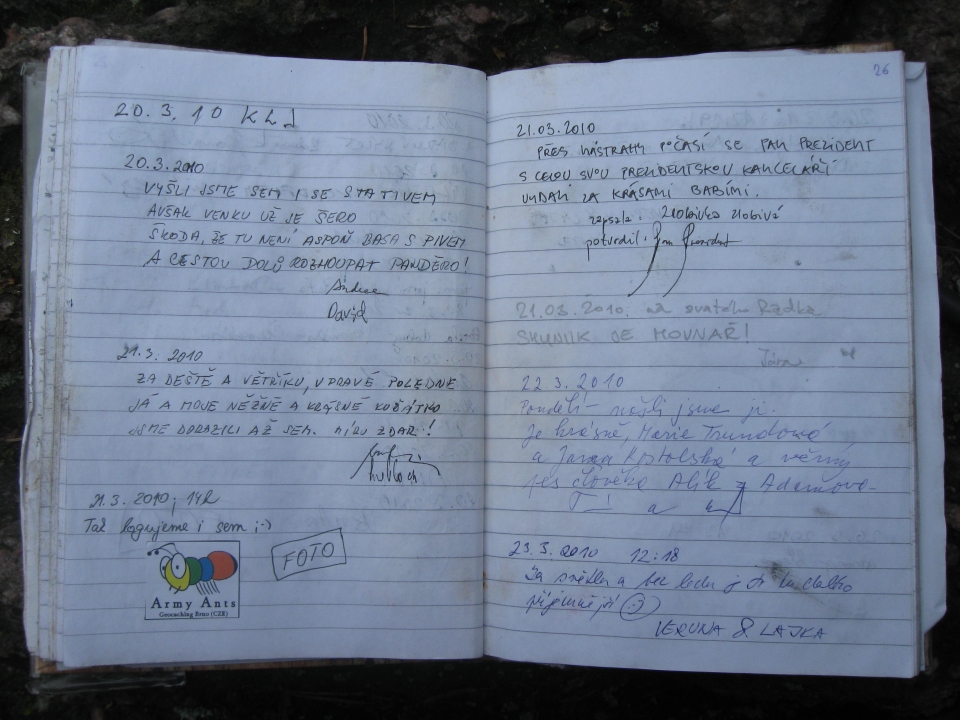 20.3.10 KLJ
20.3.2010
VYŠLI JSME SEM I SE STATIVEM
AVŠAK VENKU UŽ JE ŠERO
ŠKODA, ŽE TU NENÍ ASPOŇ BASA S PIVEM
A CESTOU DOLŮ ROZHOUPAT PANDĚRO!
Andrea
David
21.3. 2010
ZA DEŠTĚ A VĚTŘÍKU, V PRAVÉ POLEDNE
JÁ A MOJE NĚŽNÉ A KRÁSNÉ KOŤÁTKO
JSME DORAZILI AŽ SEM. MÍRU ZDAR!
21.3.2010, 14h
Tak logujeme i sem :-)
FOTO
Army Ants
Geocaching Brno (CZE)
26
21.03.2010
PŘES NÁSTRAHY POČASÍ SE PAN PREZIDENT
S CELOU SVOU PREZIDENTSKOU KANCELÁŘÍ
VYDALI ZA KRÁSAMI BABÍMI.
zapsala: Zlobivka zlobivá
potvrdil: Pan Prezident
21.03.2010, na svatého Radka
SHUNUK JE HOVNAŘ!
22.3.2010
Pondělí - našli jsme ji.
Je krásně, Marie Trundová
a Jarka Kostolská a věrný
pes člověka Alík z Adamova-
23.3.2010 12:18
Za světla a bez ledu je to tu daleko
příjemnější :-)
VERUNA & LAJKA